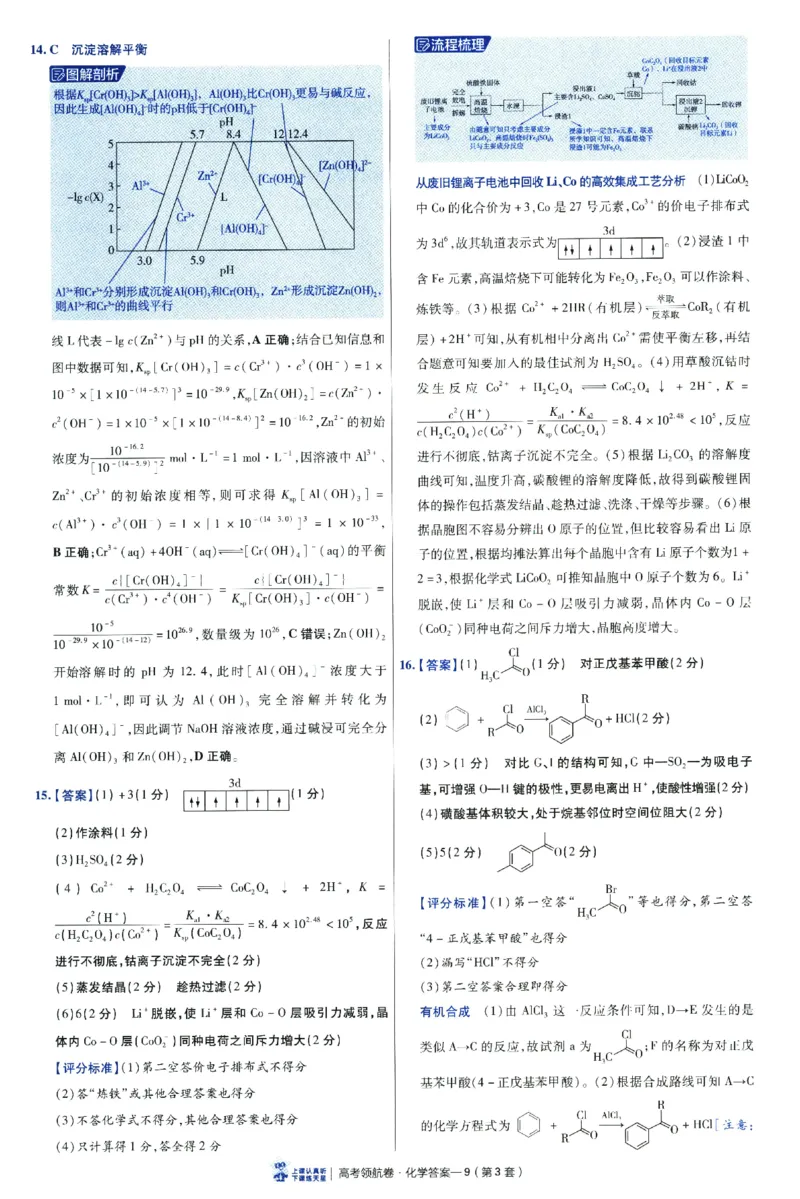 14. C 沉淀溶解平衡
图解剖析
根据Ksp[Cr(OH)3]>Ksp[Al(OH)3]，Al(OH)3比Cr(OH)3更易与碱反应，
因此生成[Al(OH)4]⁻时的pH低于[Cr(OH)4]⁻
pH
5.7 8.4 12 12.4
5
4
3
2
1
0
-lg c(X)
Al³⁺
Cr³⁺
Zn²⁺
L
[Cr(OH)4]⁻
[Al(OH)4]⁻
[Zn(OH)4]²⁻
3.0 5.9
pH
Al³⁺和Cr³⁺分别形成沉淀Al(OH)3和Cr(OH)3，Zn²⁺形成沉淀Zn(OH)2，
则Al³⁺和Cr³⁺的曲线平行
线 L 代表 -lg c(Zn²⁺)与 pH 的关系，A 正确；结合已知信息和
图中数据可知，Ksp[Cr(OH)3] = c(Cr³⁺)·c³(OH⁻) = 1 ×
10⁻⁵ × [1 × 10^-(14-5.7)]³ = 10^-29.9，Ksp[Zn(OH)2] = c(Zn²⁺)·
c²(OH⁻) = 1 × 10⁻⁵ × [1 × 10^-(14-8.4)]² = 10^-16.2，Zn²⁺的初始
浓度为 10^-16.2 / [10^-(14-5.9)]² mol·L⁻¹ = 1 mol·L⁻¹，因溶液中 Al³⁺、
Zn²⁺、Cr³⁺ 的初始浓度相等，则可求得 Ksp[Al(OH)3] =
c(Al³⁺)·c³(OH⁻) = 1 × [1 × 10^-(14-3.0)]³ = 1 × 10⁻³³，
B 正确；Cr³⁺(aq) + 4OH⁻(aq) ⇌ [Cr(OH)4]⁻(aq)的平衡
常数 K = c{[Cr(OH)4]⁻} / c(Cr³⁺)·c⁴(OH⁻) = c{[Cr(OH)4]⁻} / Ksp[Cr(OH)3]·c(OH⁻) =
10⁻⁵ / 10^-29.9 × 10^-(14-12) = 10^26.9，数量级为 10²⁶，C 错误；Zn(OH)2
开始溶解时的 pH 为 12.4，此时[Al(OH)4]⁻浓度大于
1 mol·L⁻¹，即可认为 Al(OH)3 完全溶解并转化为
[Al(OH)4]⁻，因此调节 NaOH 溶液浓度，通过碱浸可完全分
离 Al(OH)3 和 Zn(OH)2，D 正确。
15.【答案】(1) +3(1 分) 3d ↑↓ ↑ ↑ ↑ ↑ (1 分)
(2)作涂料(1 分)
(3)H2SO4(2 分)
(4) Co²⁺ + H2C2O4 ⇌ CoC2O4 ↓ + 2H⁺，K =
c²(H⁺) / c(H2C2O4)c(Co²⁺) = Ka1·Ka2 / Ksp(CoC2O4) = 8.4 × 10^2.48 < 10⁵，反应
进行不彻底，钴离子沉淀不完全(2 分)
(5)蒸发结晶(2 分) 趁热过滤(2 分)
(6)6(2 分) Li⁺脱嵌，使 Li⁺层和 Co-O 层吸引力减弱，晶
体内 Co-O 层(CoO2⁻)同种电荷之间斥力增大(2 分)
【评分标准】(1)第二空答价电子排布式不得分
(2)答“炼铁”或其他合理答案也得分
(3)不答化学式不得分，其他合理答案也得分
(4)只计算得 1 分，答全得 2 分
流程梳理
废旧锂离子电池
完全放电
拆解
主要成分为LiCoO2
硫酸铁固体
高温焙烧
由题意可知只考虑主要成分LiCoO2，高温焙烧时Fe2(SO4)3只与主要成分反应
水浸
浸出液1
主要含Li2SO4、CoSO4
浸渣1
浸渣1中一定含Fe元素，联系所学知识可知，高温焙烧下浸渣1可能为Fe2O3
草酸
沉钴
CoC2O4（回收目标元素Co），Li⁺在浸出液2中
回收钴
浸出液2
沉锂
回收锂
碳酸钠
Li2CO3（回收目标元素Li）
从废旧锂离子电池中回收 Li、Co 的高效集成工艺分析 (1)LiCoO2
中 Co 的化合价为 +3，Co 是 27 号元素，Co³⁺的价电子排布式
为 3d⁶，故其轨道表示式为 3d ↑↓ ↑ ↑ ↑ ↑ 。(2)浸渣 1 中
含 Fe 元素，高温焙烧下可能转化为 Fe2O3，Fe2O3 可以作涂料、
炼铁等。(3)根据 Co²⁺ + 2HR(有机层) 萃取⇌反萃取 CoR2(有机
层) + 2H⁺可知，从有机相中分离出 Co²⁺需使平衡左移，再结
合题意可知要加入的最佳试剂为 H2SO4。(4)用草酸沉钴时
发生反应 Co²⁺ + H2C2O4 ⇌ CoC2O4 ↓ + 2H⁺，K =
c²(H⁺) / c(H2C2O4)c(Co²⁺) = Ka1·Ka2 / Ksp(CoC2O4) = 8.4 × 10^2.48 < 10⁵，反应
进行不彻底，钴离子沉淀不完全。(5)根据 Li2CO3 的溶解度
曲线可知，温度升高，碳酸锂的溶解度降低，故得到碳酸锂固
体的操作包括蒸发结晶、趁热过滤、洗涤、干燥等步骤。(6)根
据晶胞图不容易分辨出 O 原子的位置，但比较容易看出 Li 原
子的位置，根据均摊法算出每个晶胞中含有 Li 原子个数为 1 +
2 = 3，根据化学式 LiCoO2 可推知晶胞中 O 原子个数为 6。Li⁺
脱嵌，使 Li⁺层和 Co-O 层吸引力减弱，晶体内 Co-O 层
(CoO2⁻)同种电荷之间斥力增大，晶胞高度增大。
16.【答案】(1) H3C Cl O (1 分) 对正戊基苯甲酸(2 分)
(2) + R Cl O AlCl3 → R O + HCl(2 分)
(3) >(1 分) 对比 G、I 的结构可知，G 中—SO2—为吸电子
基，可增强 O—H 键的极性，更易电离出 H⁺，使酸性增强(2 分)
(4)磺酸基体积较大，处于烷基邻位时空间位阻大(2 分)
(5)5(2 分) O(2 分)
【评分标准】(1)第一空答“ H3C Br O ”等也得分，第二空答
“4-正戊基苯甲酸”也得分
(2)漏写“HCl”不得分
(3)第二空答案合理即得分
有机合成 (1)由 AlCl3 这一反应条件可知，D→E 发生的是
类似 A→C 的反应，故试剂 a 为 H3C Cl O ；F 的名称为对正戊
基苯甲酸(4-正戊基苯甲酸)。(2)根据合成路线可知 A→C
的化学方程式为 + R Cl O AlCl3 → R O + HCl[注意：
上课认真听
下课练天星
高考领航卷·化学答案—9（第 3 套）